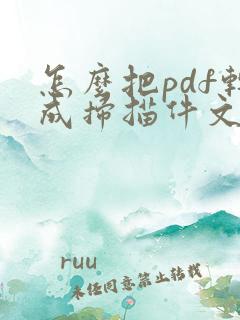 怎麼把pdf轉
成掃描件文
ruu
未經同意禁止转载